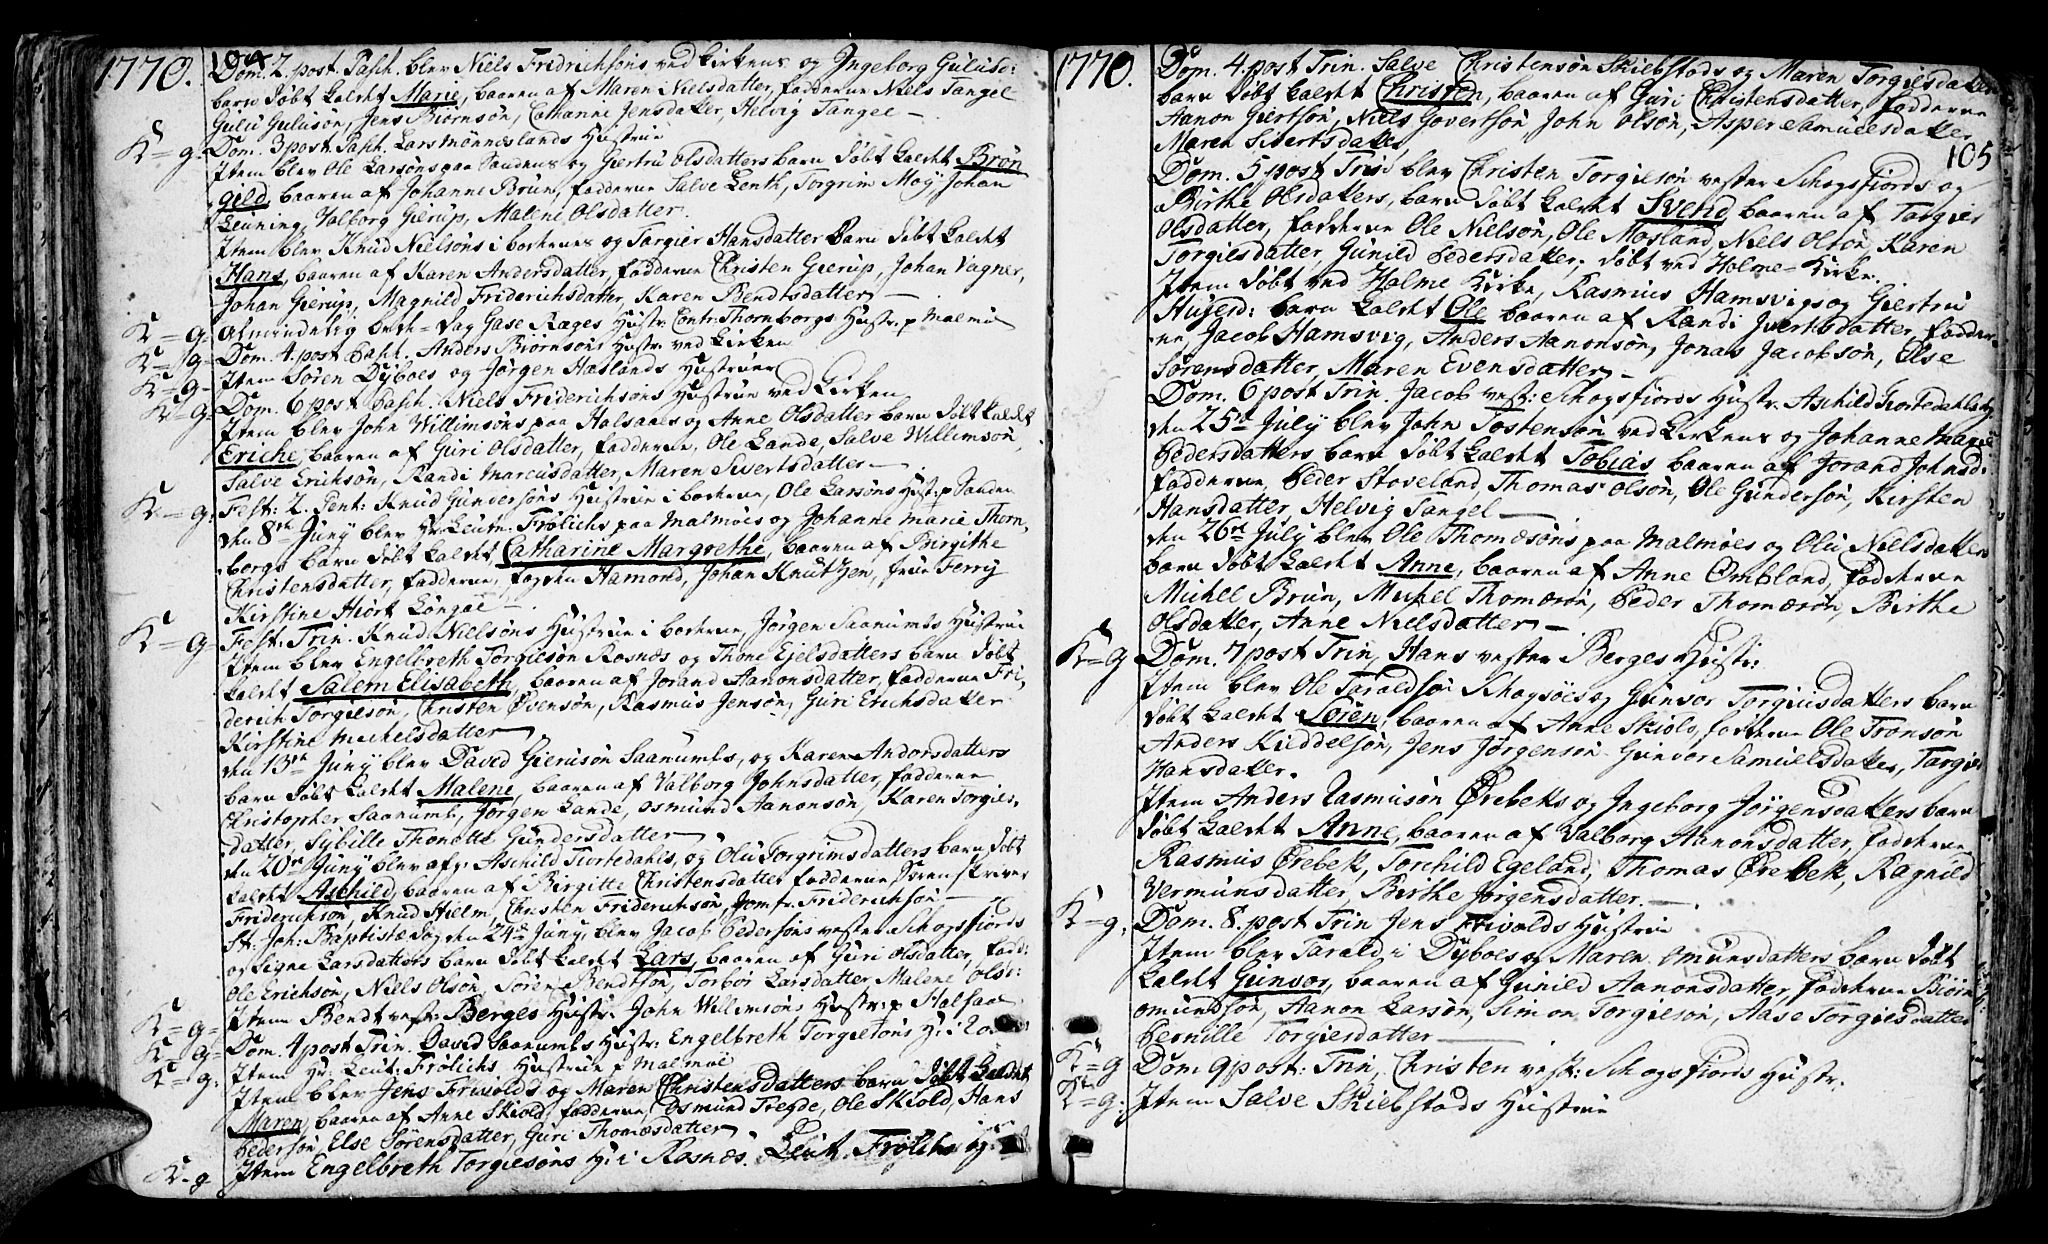 1770.
104
Dom. 2. post. Pasch. blev Niels Fridrichsöns ved Kirkens og Ingeborg Gulusd:
barn döbt kaldet Marie, baaren af Maren Nielsdatter, fadderne Niels Tangee
Gulu Gulusön, Jens Biörnsön, Cathanne Jensdatter, Helvig Tangee —
K = g. Dom. 3 post. Pasch. Lars Mönneslands Hustrue
Item blev Ole Larsöns paa Sandens og Giertru Olsdatters barn döbt kaldet Brön
gild, baaren af Johanne Brun, fadderne Salve Lenth, Torgrim Moy, Johan
Leuning, Valborg Gierup, Malene Olsdatter.
Item blev Knud Nielsöns i borkenes og Torgier Hansdatter barn döbt kaldet
Hans, baaren af Karen Andersdatter, fadderne Christen Gierup, Johan Vagner,
Johan Gierup, Magnild Friderichsdatter, Karen Bendtsdatter —
K = g. Almindelig bede-dag Gase Rages Hustr. Contr: Thornborgs Hustr. p Malmöe
K = g. Dom. 4. post Pasch. Anders Biörnsöns Hustr. ved Kirken
K = g. Item Sören Dyboes og Jörgen Haslands Hustruer
K = g. Dom. 6 post Pasch. Niels Friderichsöns Hustrue ved Kirken
Item blev John Willimsöns paa Halsaaes og Anne Olsdatter barn döbt kaldet
Eriche, baaren af Guri Olsdatter, fadderne, Ole Lande, Salve Willimsön,
Salve Erichsön, Randi Marcusdatter, Maren Sivertsdatter —
K = g. Fest: 2. Pent: Knud Gunversöns Hustrue i borkene, Ole Larsöns Hustr: p Sanden
den 8de Juny blev Hr. Leutn. Frölichs paa Malmöes og Johanne Marie Thorn,
borgs barn döbt kaldet Catharine Margrethe, baaren af Birgithe
Christensdatter, fadderne, fogden Hamond, Johan Knutzen, frue Ferry
Kirstine Hiört Longae —
K = g. Fest: Trin: Knud Nielsöns Hustrue i borkene, Jörgen Saanumbs Hustrue
Item blev Engelbreth Torgiesön Rosnæs og Thone Ejelsdatters barn döbt
kaldet Salem Elisabeth, baaren af Jorand Aanonsdatter, fadderne Fri,
derich Torgiesön, Christen Övensön, Rasmus Jensön, Guri Erichsdatter
Kirstine Michelsdatter
den 13de Juny blev David Gierusön Saanumbs, og Karen Andorsdatters
barn döbt kaldet Malene, baaren af Valborg Johnsdatter, fadderne
Christopher Saanumb, Jörgen Lande, Osmund Aanonsön, Karen Torgies,
datter, Sybille Thonette Gundersdatter
den 20de Juny blev afg: Aschild Tiortedahls, og Olu Torgrimsdatters barn döbt
kaldet Aschild, baaren af Birgitte Christensdatter fadderne, Svenskrever
Friderichsön, Knud Hielm, Christen Friderichsön, Jomfr. Friderichsön. —
St. Joh: Baptistæ dag den 24de Juny, blev Jacob Pedersöns vester Schogsfiords
og Signe Larsdatters barn döbt kaldet Lars, baaren af Guri Olsdatter, fadd:
Ole Erichsön, Niels Olsön, Sören Bendtsön, Torbör Larsdatter Malene Olsd:
K = g. Item Bendt vest: Berges Hustr. John Willimsöns Hustr: p Halsaa
K = g. Dom. 4 post Trin. David Saanumbs Hustr: Engelbreth Torgiesöns H: i Ros
K = g. Item Hr: Leut: Frölichs Hustrue p Malmöe
Item blev Jens Frivolds og Maren Christensdatters barn döbt kaldet
Maren, baaren af Anne Skiold, fadderne, Osmund Tregde, Ole Skiold, Hans
Pedersön, Else Sörensdatter, Guri Thomæsdatter
K - g Item Engelbreth Torgiesöns H: i Rosnæs. Leut. Frölichs H:
1770.
Dom. 4. post Trin. Salve Christensön Skiebstads og Maren Torgiesdatter
barn döbt kaldet Christen, baaren af Guri Christensdatter, fadderne
Aanon Giertsön, Niels Govertsön John Olsön, Asper Samuelsdatter
Maren Sivertsdatter
105
Dom. 5 post Trin: blev Christen Torgiesön vester Schogsfiords og
Birthe Olsdatters, barn döbt kaldet Svend, baaren af Torgier
Olsdatter, fadderne Ole Nielsön, Ole Mosland, Niels Olsön, Karen
Torgiesdatter, Gunild Pedersdatter, döbt ved Holme-Kirke.
Item döbt ved Holme Kirke, Rasmus Hamsvigs og Giertru
Hugesd: barn kaldet Ole baaren af Randi Ivertsdatter, fadder-
ne, Jacob Hamsvig, Anders Aanonsön, Jonas Jacobsön, Else
Sörensdatter, Maren Evensdatter —
Dom. 6 post Trin. Jacob vest: Schogsfiords Hustr. Aschild Tiortedahls H:
den 25de July blev John Tostensön ved Kirkens og Johanne Marie
Pedersdatters barn döbt kaldet Tobias, baaren af Jorand Johnsd:
fadderne, Peder Stoveland, Thomas Olsön, Ole Gundersön, Kirsten
Hansdatter, Helvig Tangel —
den 26de July blev Ole Thomæsöns paa Malmöes og Olu Nielsdatters
barn döbt kaldet Anne, baaren af Anne Ombland, fadderne
Michel Brun, Michel Thomæsön, Peder Thomæsön, Birthe
Olsdatter, Anne Nielsdatter —
K = g Dom. 7 post Trin, Hans vester Berges Hustr:
Item blev Ole Taraldsön Schogsöes og Gunvor Torgiusdatters barn
döbt kaldet Sören, baaren af Anne Skiold, fadderne Ole Tronsön
Anders Kieddelsön, Jens Jörgensön Gunvor Samuelsdatter, Torgier
Hansdatter.
Item Anders Rasmusön Örebeks og Ingeborg Jörgensdatters barn
döbt kaldet Anne, baaren af Valborg Aanonsdatter, fadderne
Rasmus Örebek, Torchild Egeland, Thomas Örebek, Ragnild
Vermunsdatter, Birthe Jörgensdatter. —
K = g. Dom. 8. post Trin Jens Frivolds Hustrue
Item blev Tarald i Dyboes og Maren Omunsdatters barn döbt
kaldet Gunvor, baaren af Gunild Aanonsdatter, fadderne Biörn
Omundsön, Aanon Larsön, Simon Torgiesön, Aase Torgiesdatter
Pernille Torgiersdatter —
K = g Dom 9 post: Trin, Christen vest: Schogsfiords Hustr.
K = g. Item Salve Skiebstads Hustrue